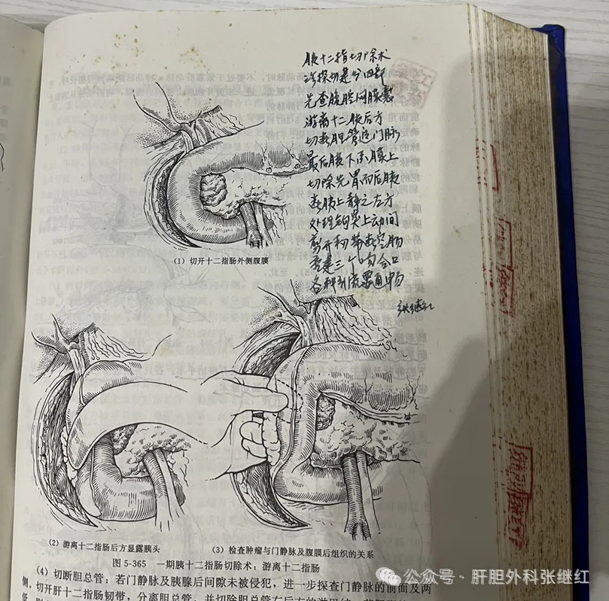 胰十二指切除术
先查腹腔网膜数
游离十二胰后方
切离胆管近门脉
最后胰下系膜上
切除先胃而后胰
离胰上静之左方
处理钩突上动间
离开利带离空肠
重建三个吻合口
各种引流要通畅
张继红
(1) 切开十二指肠外侧腹膜
(2) 游离十二指肠后方显露胰头
(3) 检查肿瘤与门静脉及腹膜后组织的关系
图 5-365 一期胰十二指肠切除术:游离十二指肠
(4) 切断胆总管:若门静脉及胰腺后间隙未被侵犯,进一步探查门静脉的前面及两
侧,切开肝十二指肠韧带,分离胆总管,并切除胆总管右后方的
公众号·肝胆外科张继红